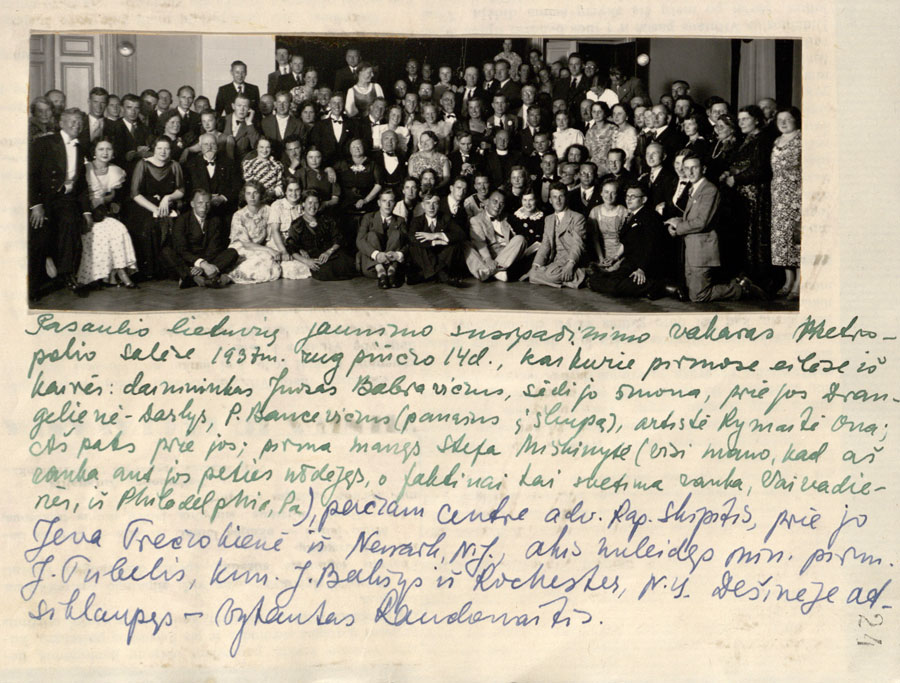 Pasaulio lietuvių jaunimo susipažinimo vakaras Metro-
polio salėse 1937 m. rugpiučio 14 d., kai kurie pirmose eilėse iš
kairės: dainininkas Juozas Babravičius, sėdi jo žmona, prie jos Dran-
gelienė - Darlys, P. Bancevičius (panašus į Šliupą), artistė Rymaitė Ona;
Aš pats prie jos; pirma manęs Stefa Mishinytė (visi mano, kad aš
ranką ant jos peties uždėjęs, o faktinai tai svetima ranka, Vaivadie-
nės, iš Philadelphia, Pa), pačiam centre adv. Rap. Skipitis, prie jo
Jeva Trečiokienė iš Newark, N.J., akis nuleidęs min. pirm.
J. Tubelis, kun. J. Bakšys iš Rochester, N.Y. Dešinėje ad-
siklaupęs - Vytautas Randonaitis.
24